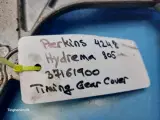 Perkins 4248
Hydrema 805
37161900
Timing Gear Cover